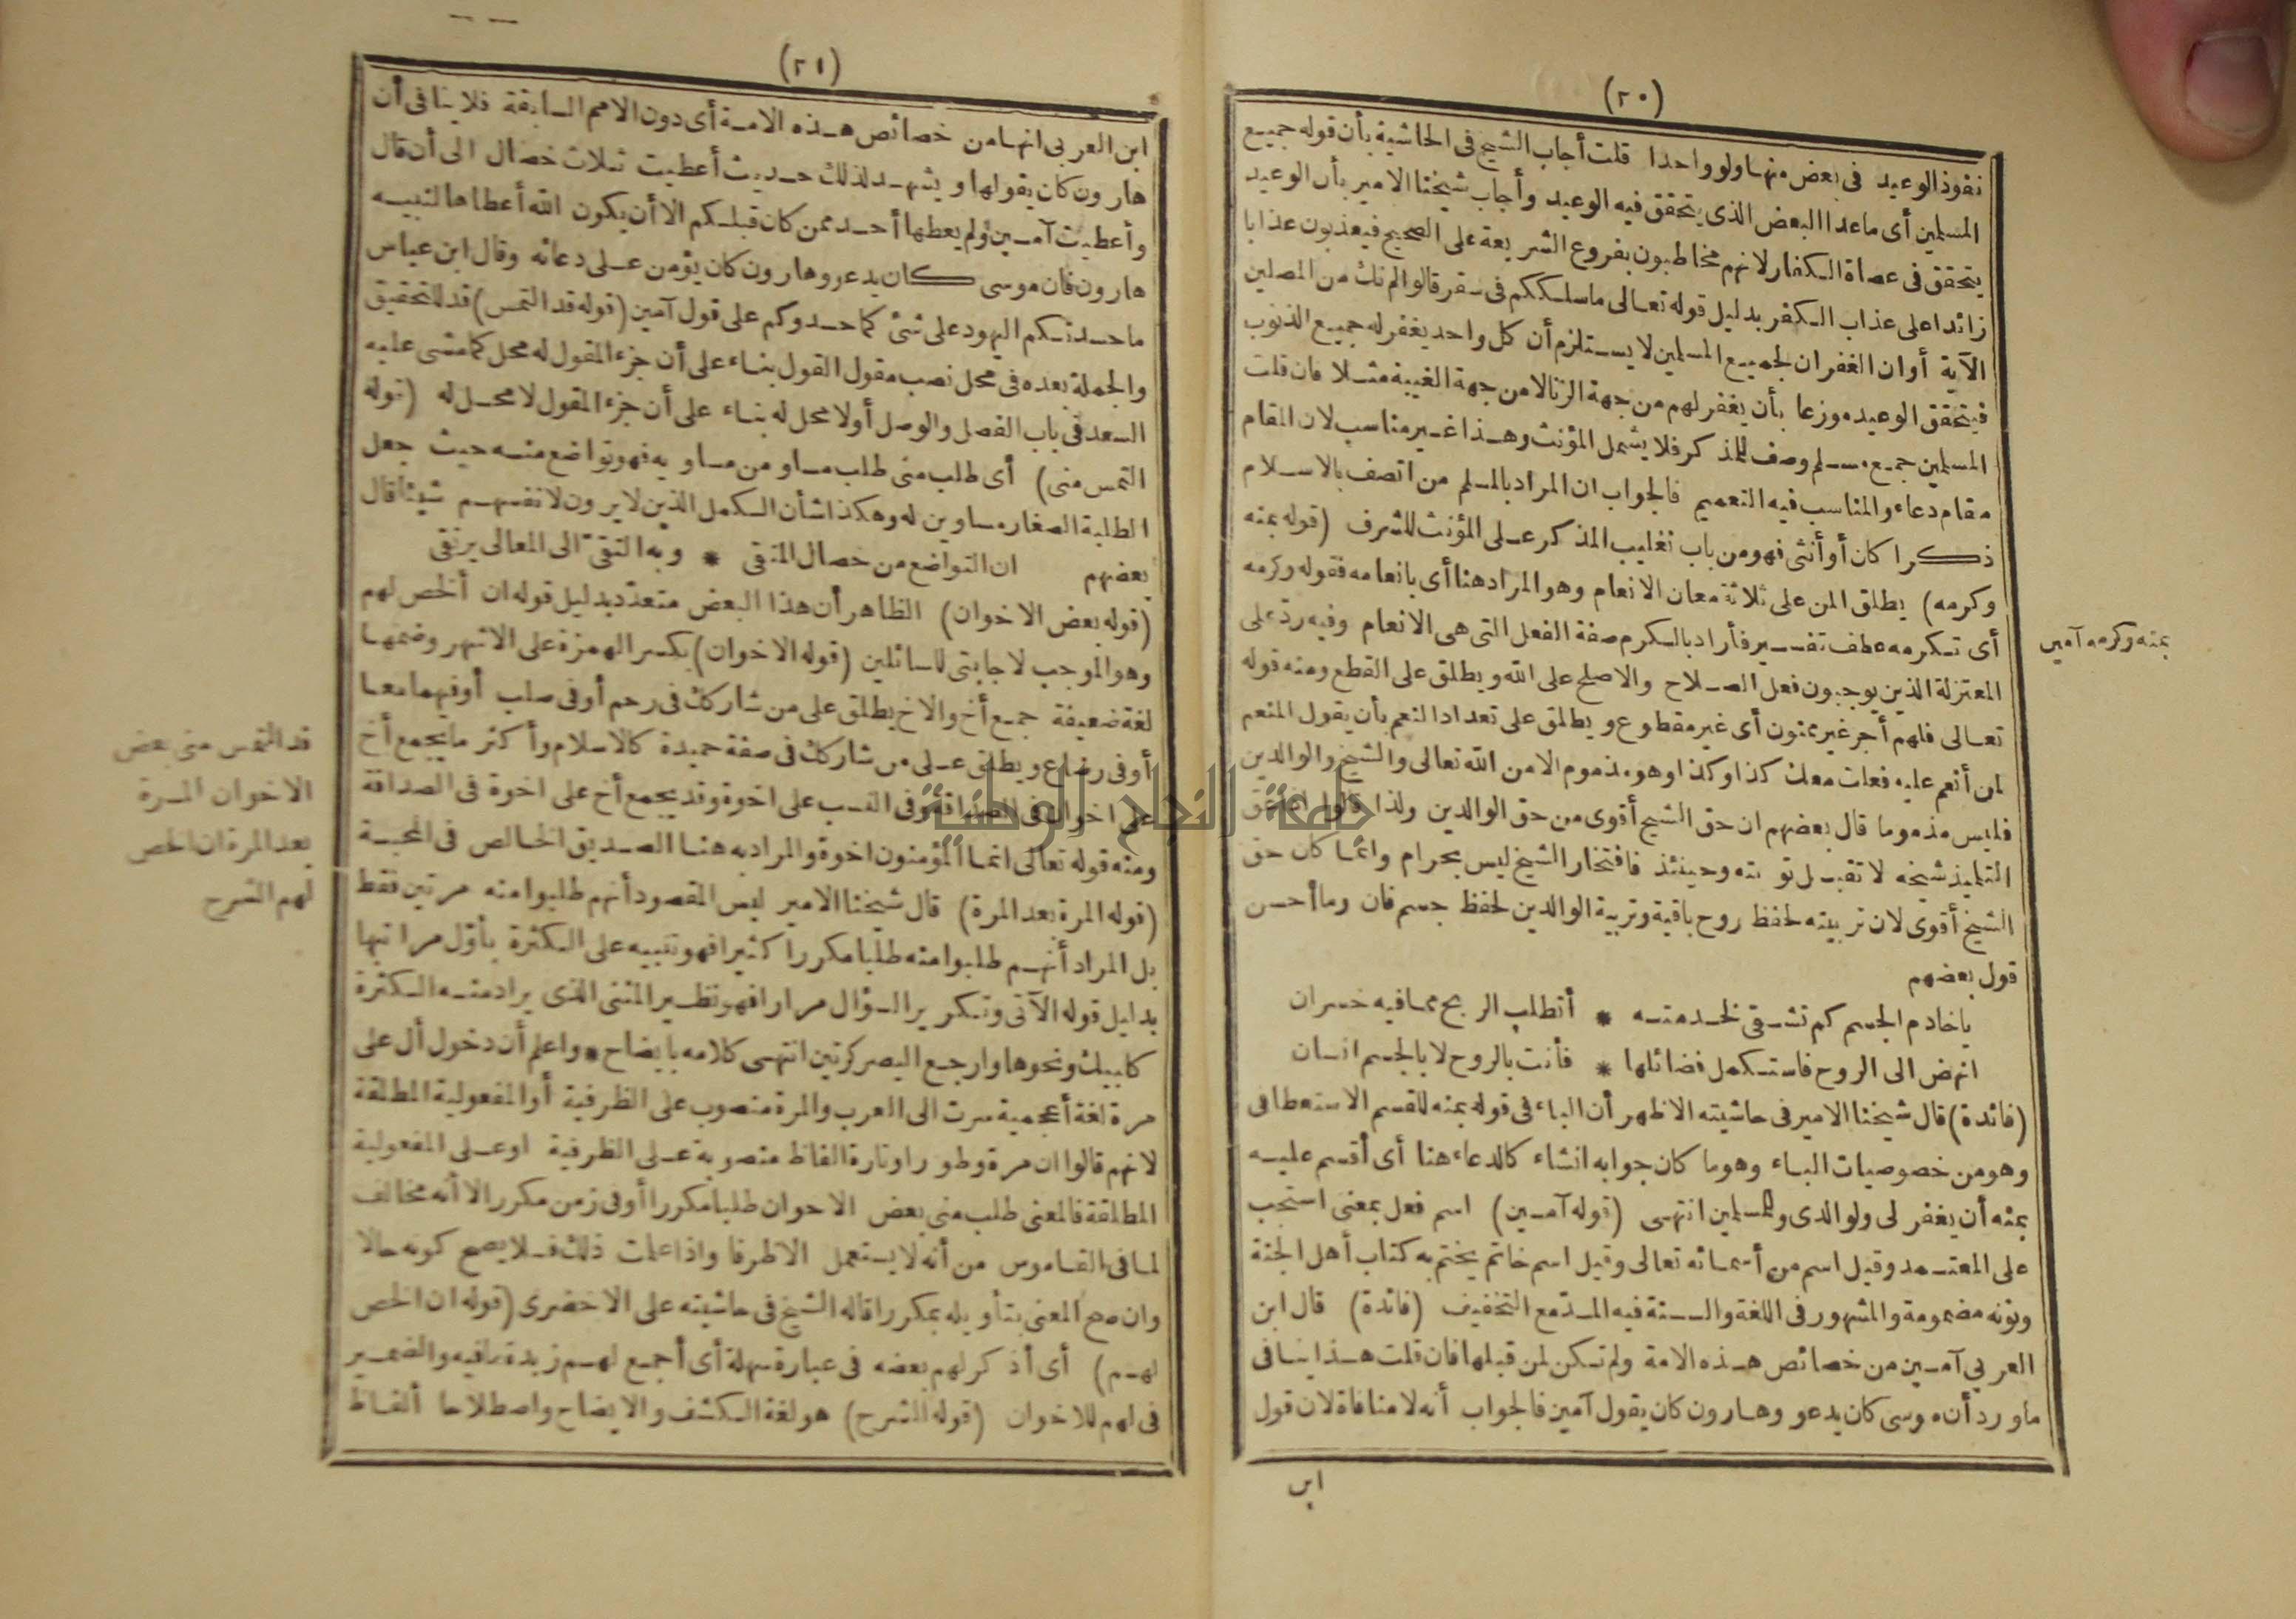 (٢٠)
نفوذ الوعيد فى بعض منها ولو واحدا قلت أجاب الشيخ فى الحاشية بأن قوله جميع
المسلمين أى ماعدا البعض الذى يتحقق فيه الوعيد وأجاب شيخنا الامير بأن الوعيد
يتحقق فى عصاة الكفار لانهم مخاطبون بفروع الشريعة على الصحيح فيعذبون عذابا
زائدا على عذاب الكفر بدليل قوله تعالى ما سلككم فى سقر قالوا لم نك من المصلين
الآية أو ان الغفران لجميع المسلمين لا يستلزم أن كل واحد يغفر له جميع الذنوب
فيتحقق الوعيد موزعا بأن يغفر لهم من جهة الزنا لا من جهة الغيبة مثلا فان قلت
المسلمين جمع مسلم وصف للمذكر فلا يشمل المؤنث وهذا غير مناسب لان المقام
مقام دعاء والمناسب فيه التعميم فالجواب ان المراد بالمسلم من اتصف بالاسلام
ذكرا كان أو أنثى فهو من باب تغليب المذكر على المؤنث للشرف (قوله بمنه
وكرمه) يطلق المن على ثلاثة معان الانعام وهو المراد هنا أى بانعامه فقوله وكرمه
أى تكرمه عطف تفسير فأراد بالكرم صفة الفعل التى هى الانعام وفيه رد على
المعتزلة الذين يوجبون فعل الصلاح والاصلح على الله ويطلق على القطع ومنه قوله
تعالى فلهم أجر غير ممنون أى غير مقطوع ويطلق على تعداد النعم بأن يقول المنعم
لمن أنعم عليه فعلت معك كذا وكذا وهو مذموم الا من الله تعالى والشيخ والوالدين
فليس مذموما قال بعضهم ان حق الشيخ أقوى من حق الوالدين ولذا قالوا اذا عق
التلميذ شيخه لا تقبل توبته وحينئذ فافتخار الشيخ ليس بحرام وانما كان حق
الشيخ أقوى لان تربيته لحفظ روح باقية وتربية الوالدين لحفظ جسم فان وما أحسن
قول بعضهم
يا خادم الجسم كم تشقى لخدمته * أتطلب الربح مما فيه خسران
انهض الى الروح فاستكمل فضائلها * فأنت بالروح لا بالجسم انسان
(فائدة) قال شيخنا الامير فى حاشيته الاظهر أن الباء فى قوله بمنه للقسم الاستعطافى
وهو من خصوصيات الباء وهو ما كان جوابه انشاء كالدعاء هنا أى أقسم عليه
بمنه أن يغفر لى ولوالدى وللمسلمين انتهى (قوله آمين) اسم فعل بمعنى استجب
على المعتمد وقيل اسم من أسمائه تعالى وقيل اسم خاتم يختم به كتاب أهل الجنة
ونونه مضمومة والمشهور فى اللغة والسنة فيه المد مع التخفيف (فائدة) قال ابن
العربى آمين من خصائص هذه الامة ولم تكن لمن قبلها فان قلت هذا ينافى
ماورد أن موسى كان يدعو وهارون كان يقول آمين فالجواب أنه لا منافاة لان قول
ابن
بمنه وكرمه آمين
(٢١)
ابن العربى انها من خصائص هذه الامة أى دون الامم السابقة فلا ينافى أن
هارون كان يقولها ويشهد لذلك حديث أعطيت ثلاث خصال الى أن قال
وأعطيت آمين ولم يعطها أحد ممن كان قبلكم الا أن يكون الله أعطاها لنبيه
هارون فان موسى كان يدعو وهارون كان يؤمن على دعائه وقال ابن عباس
ما حسدتكم اليهود على شئ كما حسدوكم على قول آمين (قوله قد التمس) قد للتحقيق
والجملة بعده فى محل نصب مقول القول بناء على أن جزء المقول له محل كما مشى عليه
السعد فى باب الفصل والوصل أو لا محل له بناء على أن جزء المقول لا محل له (قوله
التمس منى) أى طلب منى طلب مساو من مساويه فهو تواضع منه حيث جعل
الطلبة الصغار مساوين له وهكذا شأن الكمل الذين لا يرون لانفسهم شيئا قال
بعضهم ان التواضع من خصال المتقى * وبه التقى الى المعالى يرتقى
(قوله بعض الاخوان) الظاهر أن هذا البعض متعدد بدليل قوله ان ألخص لهم
وهو الموجب لاجابتى للسائلين (قوله الاخوان) بكسر الهمزة على الاشهر وضمها
لغة ضعيفة جمع أخ والاخ يطلق على من شاركك فى رحم أو فى صلب أو فيهما معا
أو فى رضاع ويطلق على من شاركك فى صفة حميدة كالاسلام وأكثر ما يجمع أخ
على اخوان فى الصداقة وفى النسب على اخوة وقد يجمع أخ على اخوة فى الصداقة
ومنه قوله تعالى انما المؤمنون اخوة والمراد به هنا الصديق الخالص فى المحبة
(قوله المرة بعد المرة) قال شيخنا الامير ليس المقصود أنهم طلبوا منه مرتين فقط
بل المراد أنهم طلبوا منه طلبا مكررا كثيرا فهو تنبيه على الكثرة بأول مراتبها
بدليل قوله الآتى وتكرير السؤال مرارا فهو نظير المثنى الذى يراد منه الكثرة
كلبيك ونحوها وارجع البصر كرتين انتهى كلامه بايضاح * واعلم أن دخول أل على
مرة لغة أعجمية سرت الى العرب والمرة منصوب على الظرفية أو المفعولية المطلقة
لانهم قالوا ان مرة وطورا وتارة الفاظ منصوبة على الظرفية او على المفعولية
المطلقة فالمعنى طلب منى بعض الاخوان طلبا مكررا أو فى زمن مكرر الا أنه مخالف
لما فى القاموس من أنه لا يستعمل الا ظرفا واذا علمت ذلك فلا يصح كونه حالا
وان صح المعنى بتأويله بمكررا قاله الشيخ فى حاشيته على الاخضرى (قوله ان الخص
لهم) أى أذكر لهم بعضه فى عبارة سهلة أى أجمع لهم زبدة ما فيه والضمير
فى لهم للاخوان (قوله الشرح) هو لغة الكشف والايضاح واصطلاحا ألفاظ
قد التمس منى بعض
الاخوان المرة
بعد المرة ان الخص
لهم الشرح
جامعة النجاح الوطنية